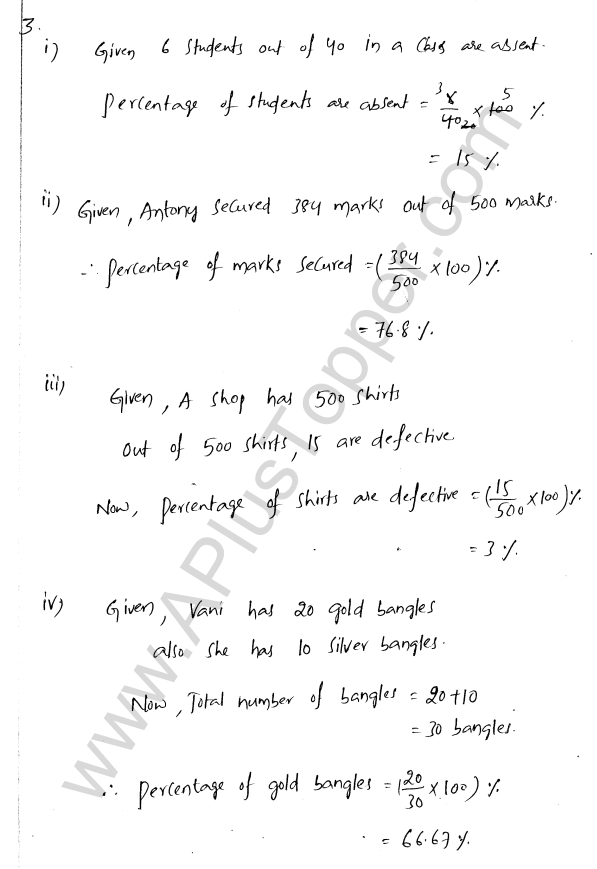 3.
i) Given 6 students out of 40 in a class are absent.
Percentage of students are absent = 6/40 × 100 %
3 20 5
= 15 %
ii) Given, Antony secured 384 marks out of 500 marks.
∴ percentage of marks secured = (384/500 × 100) %
= 76.8 %
iii) Given, A shop has 500 shirts
out of 500 shirts, 15 are defective
Now, percentage of shirts are defective = (15/500 × 100) %
= 3 %
iv) Given, Vani has 20 gold bangles
also she has 10 silver bangles.
Now, Total number of bangles = 20+10
= 30 bangles.
∴ percentage of gold bangles = (20/30 × 100) %
= 66.67 %
www.APlusTopper.com